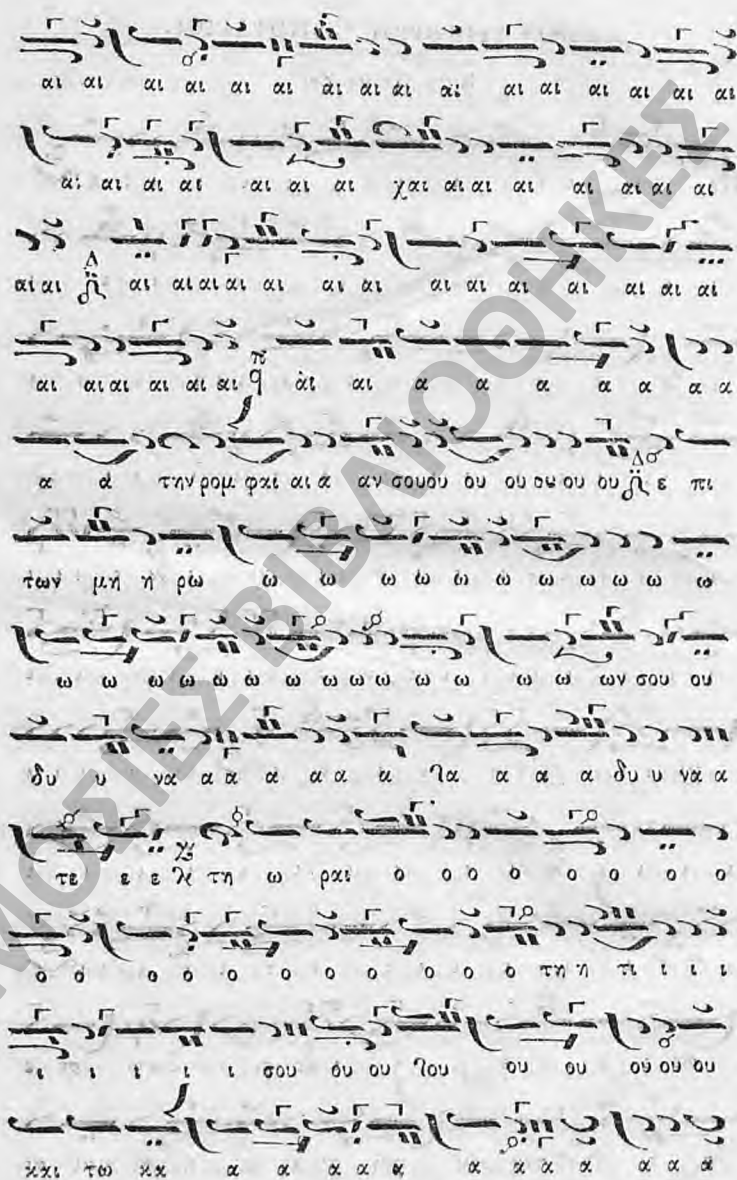 αι αι αι αι αι αι αι αι αι αι αι αι αι αι αι αι
αι αι αι αι αι αι αι χαι αι αι αι αι αι αι αι
αι αι Δ αι αι αι αι αι αι αι αι αι αι αι αι αι αι
αι αι αι αι αι αι π q αι αι α α α α α α α
α α την ρομ φαι αι α αν σου ου ου ου ου ου ου Δ ε πι
των μη η ρω ω ω ω ω ω ω ω ω ω ω ω
ω ω ω ω ω ω ω ω ω ω ω ω ω ω ων σου ου
δυ υ να α α α α α α α α α α δυ υ να α
τε ε ε τη ω ραι ο ο ο ο ο ο ο ο
ο ο ο ο ο ο ο ο ο ο ο τη η τι ι ι ι
ι ι ι ι ι σου ου ου ου ου ου ου ου ου
και τω κα α α α α α α α α α α α
ΜΟΣΙΕΣ ΒΙΒΛΙΟΘΗΚΕΣ